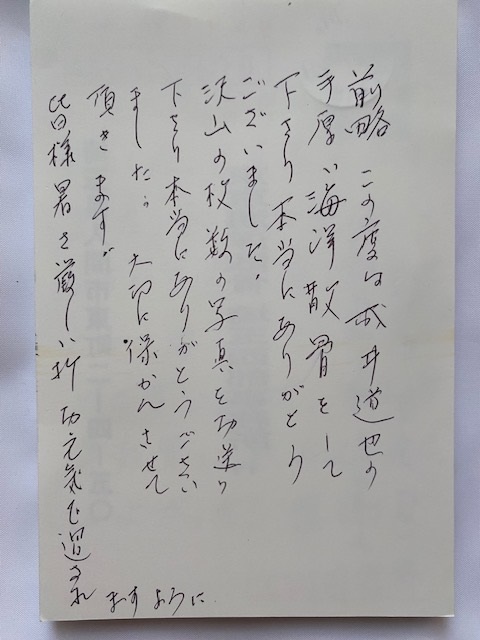 前略 この度は 成井道也の
手厚い海洋散骨をして
下さり本当にありがとう
ございました。
沢山の枚数の写真を御送り
下さり本当にありがとうござい
ました。 大切に保かんさせて
頂きます。
皆様暑さ厳しい折 御元気で過され
ますように